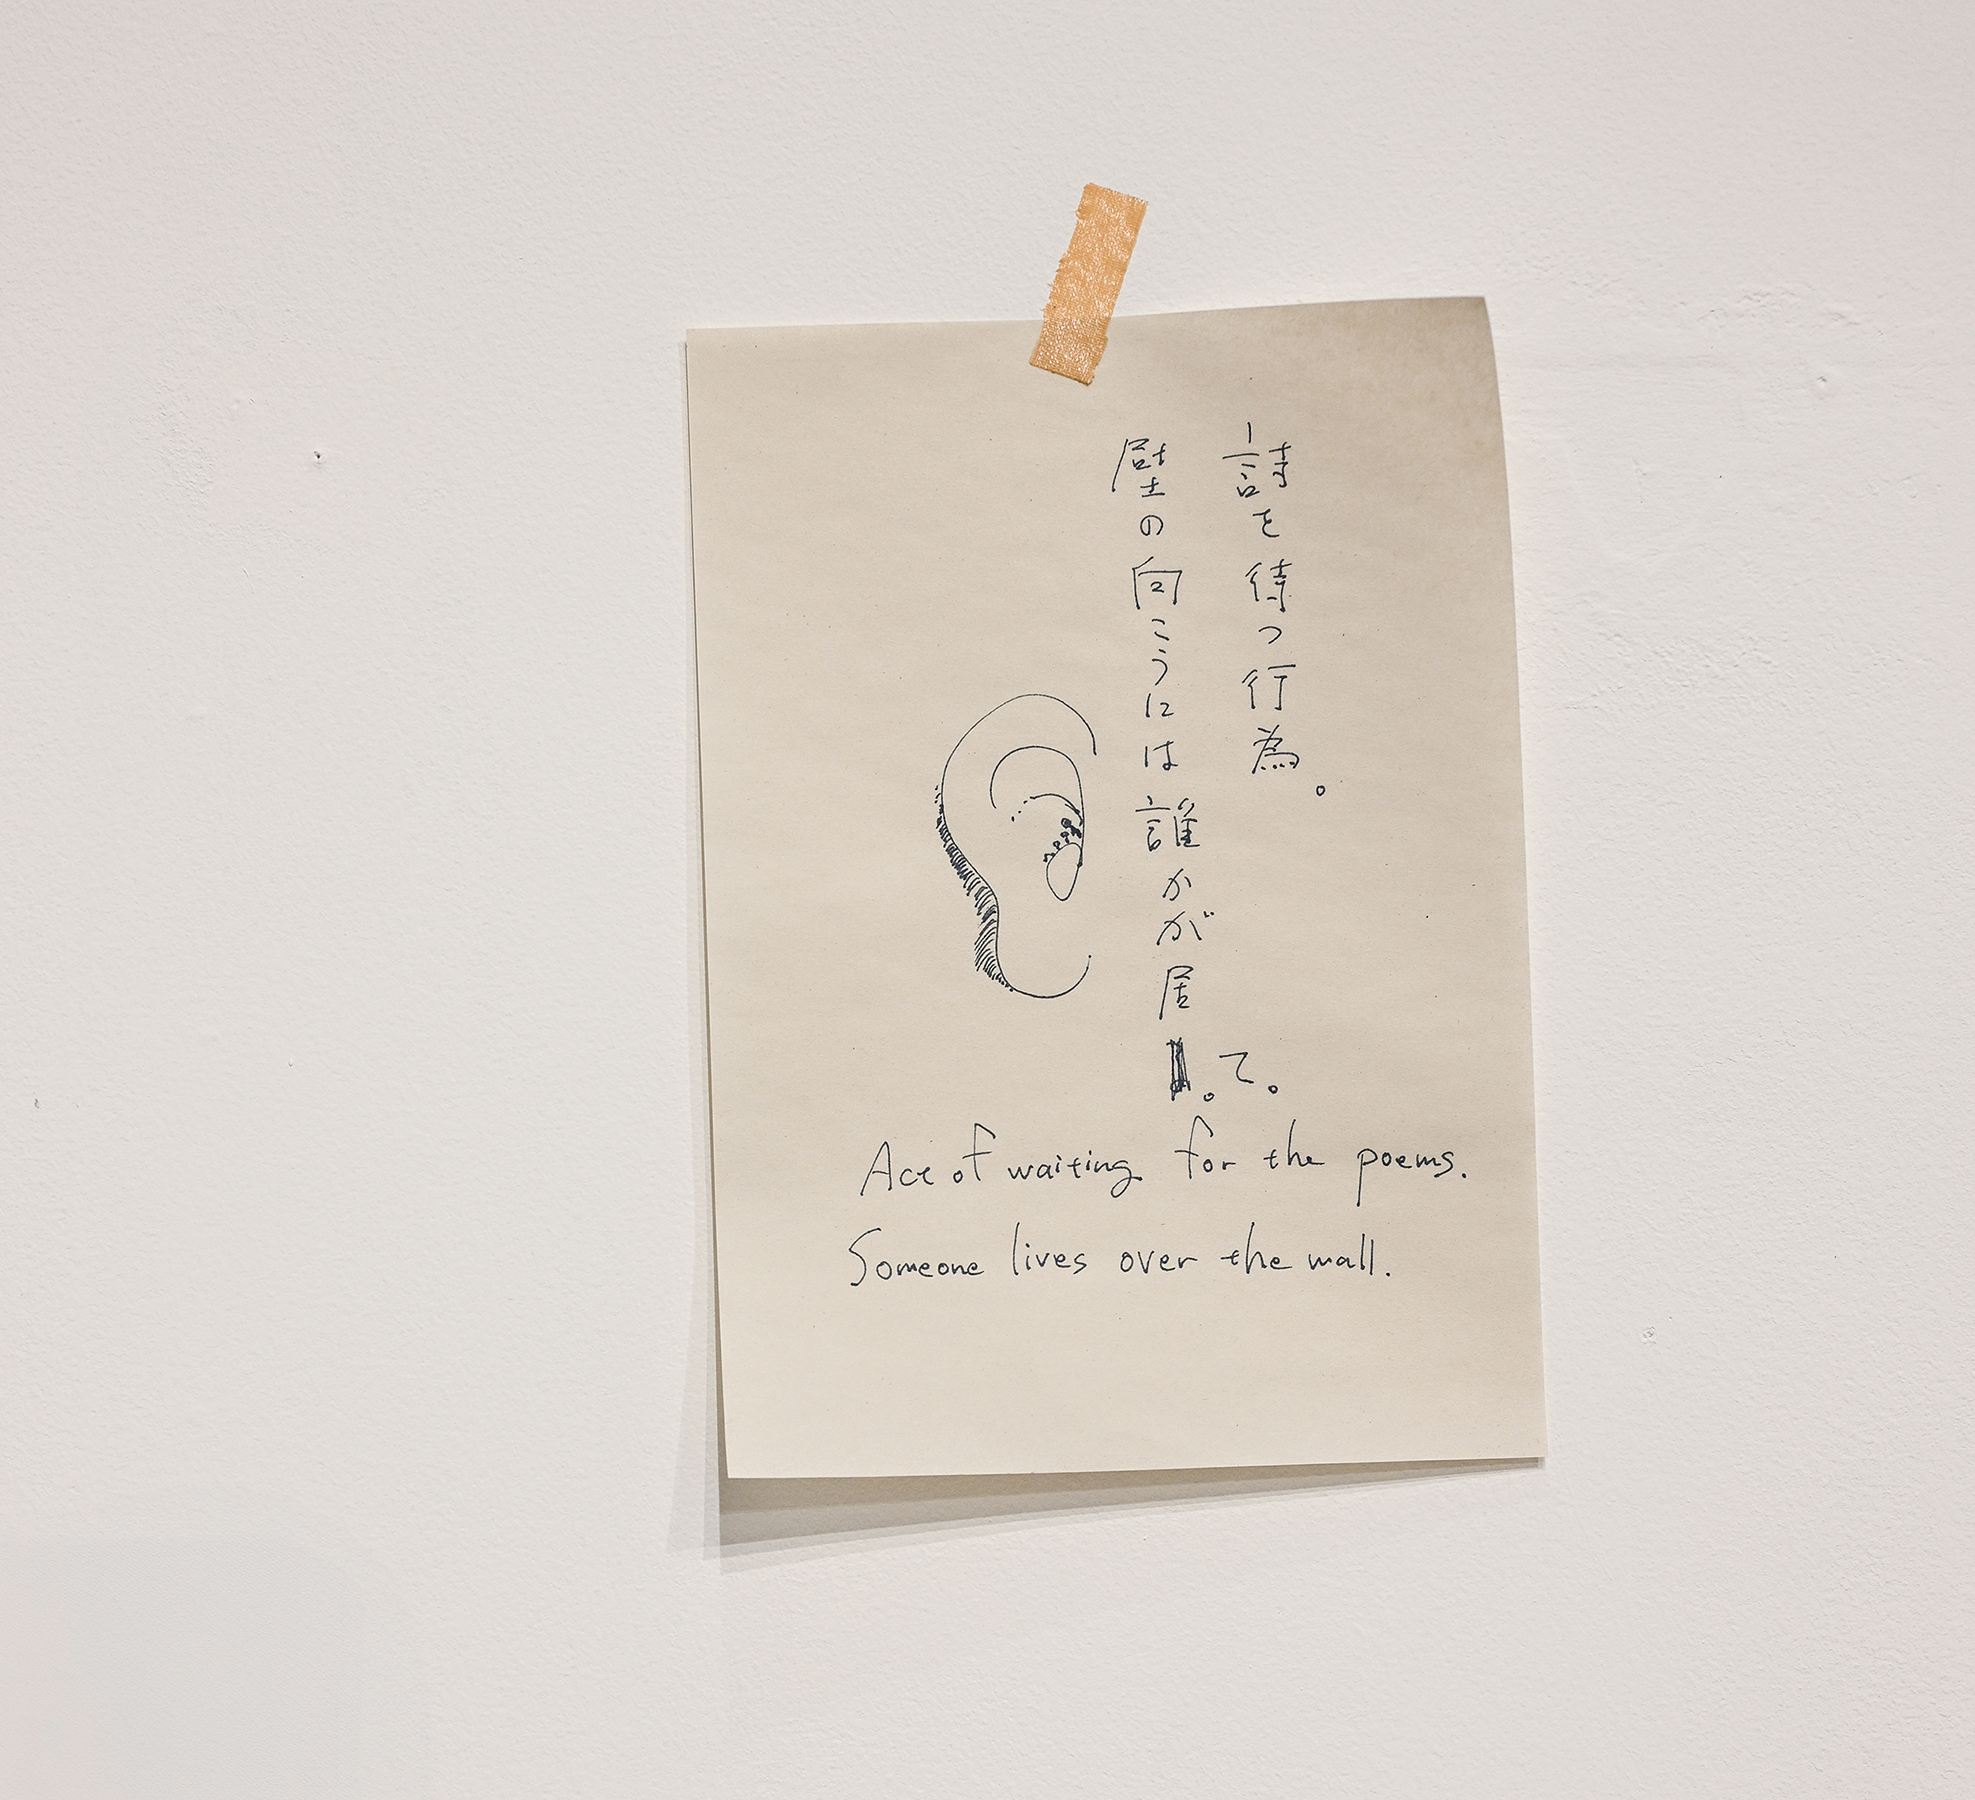 詩を待つ行為。
壁の向こうには誰かが居。て。
Act of waiting for the poems.
Someone lives over the wall.